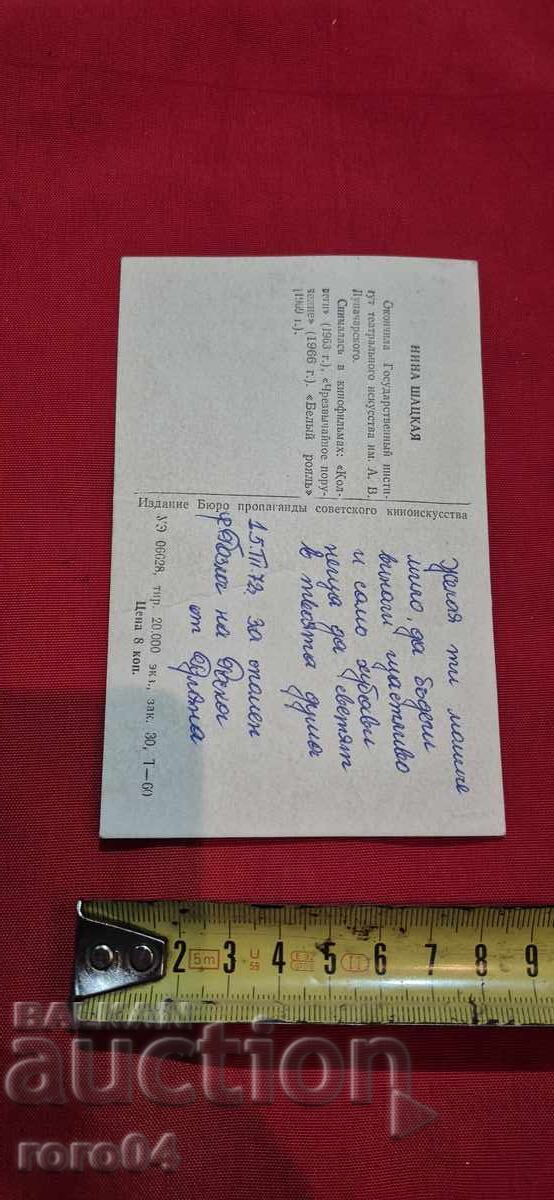 НИНА ШАЦКАЯ
Окончила Государственный инсти-
тут театрального искусства им. А. В.
Луначарского.
Снималась в кинофильмах: «Кол-
леги» (1963 г.), «Чрезвычайное пору-
чение» (1966 г.). «Белый рояль»
(1969 г.).
Издание Бюро пропаганды советского киноискусства
УЭ 06028, тир. 20.000 экз., зак. 30, Т—60
Цена 8 коп.
Желая ти момиче
мило, да бъдеш
винаги щастливо
и само хубави
неща да светят
в твоята душа
15 III 72, за спомен
на Роси
от
2 3 4 5 6 7 8 9
5 m
BALKAN
auction
roro04